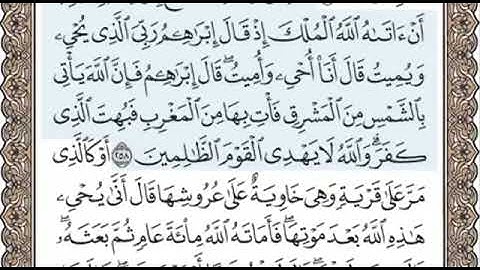 أَنْ ءَاتَىٰهُ ٱللَّهُ ٱلْمُلْكَ إِذْ قَالَ إِبْرَٰهِـۧمُ رَبِّىَ ٱلَّذِى يُحْىِۦ
وَيُمِيتُ قَالَ أَنَا۠ أُحْىِۦ وَأُمِيتُ ۖ قَالَ إِبْرَٰهِـۧمُ فَإِنَّ ٱللَّهَ يَأْتِى
بِٱلشَّمْسِ مِنَ ٱلْمَشْرِقِ فَأْتِ بِهَا مِنَ ٱلْمَغْرِبِ فَبُهِتَ ٱلَّذِى
كَفَرَ ۗ وَٱللَّهُ لَا يَهْدِى ٱلْقَوْمَ ٱلظَّـٰلِمِينَ ٢٥٨ أَوْ كَٱلَّذِى
مَرَّ عَلَىٰ قَرْيَةٍ وَهِىَ خَاوِيَةٌ عَلَىٰ عُرُوشِهَا قَالَ أَنَّىٰ يُحْىِۦ
هَـٰذِهِ ٱللَّهُ بَعْدَ مَوْتِهَا ۖ فَأَمَاتَهُ ٱللَّهُ مِا۟ئَةَ عَامٍ ثُمَّ بَعَثَهُۥ ۖ